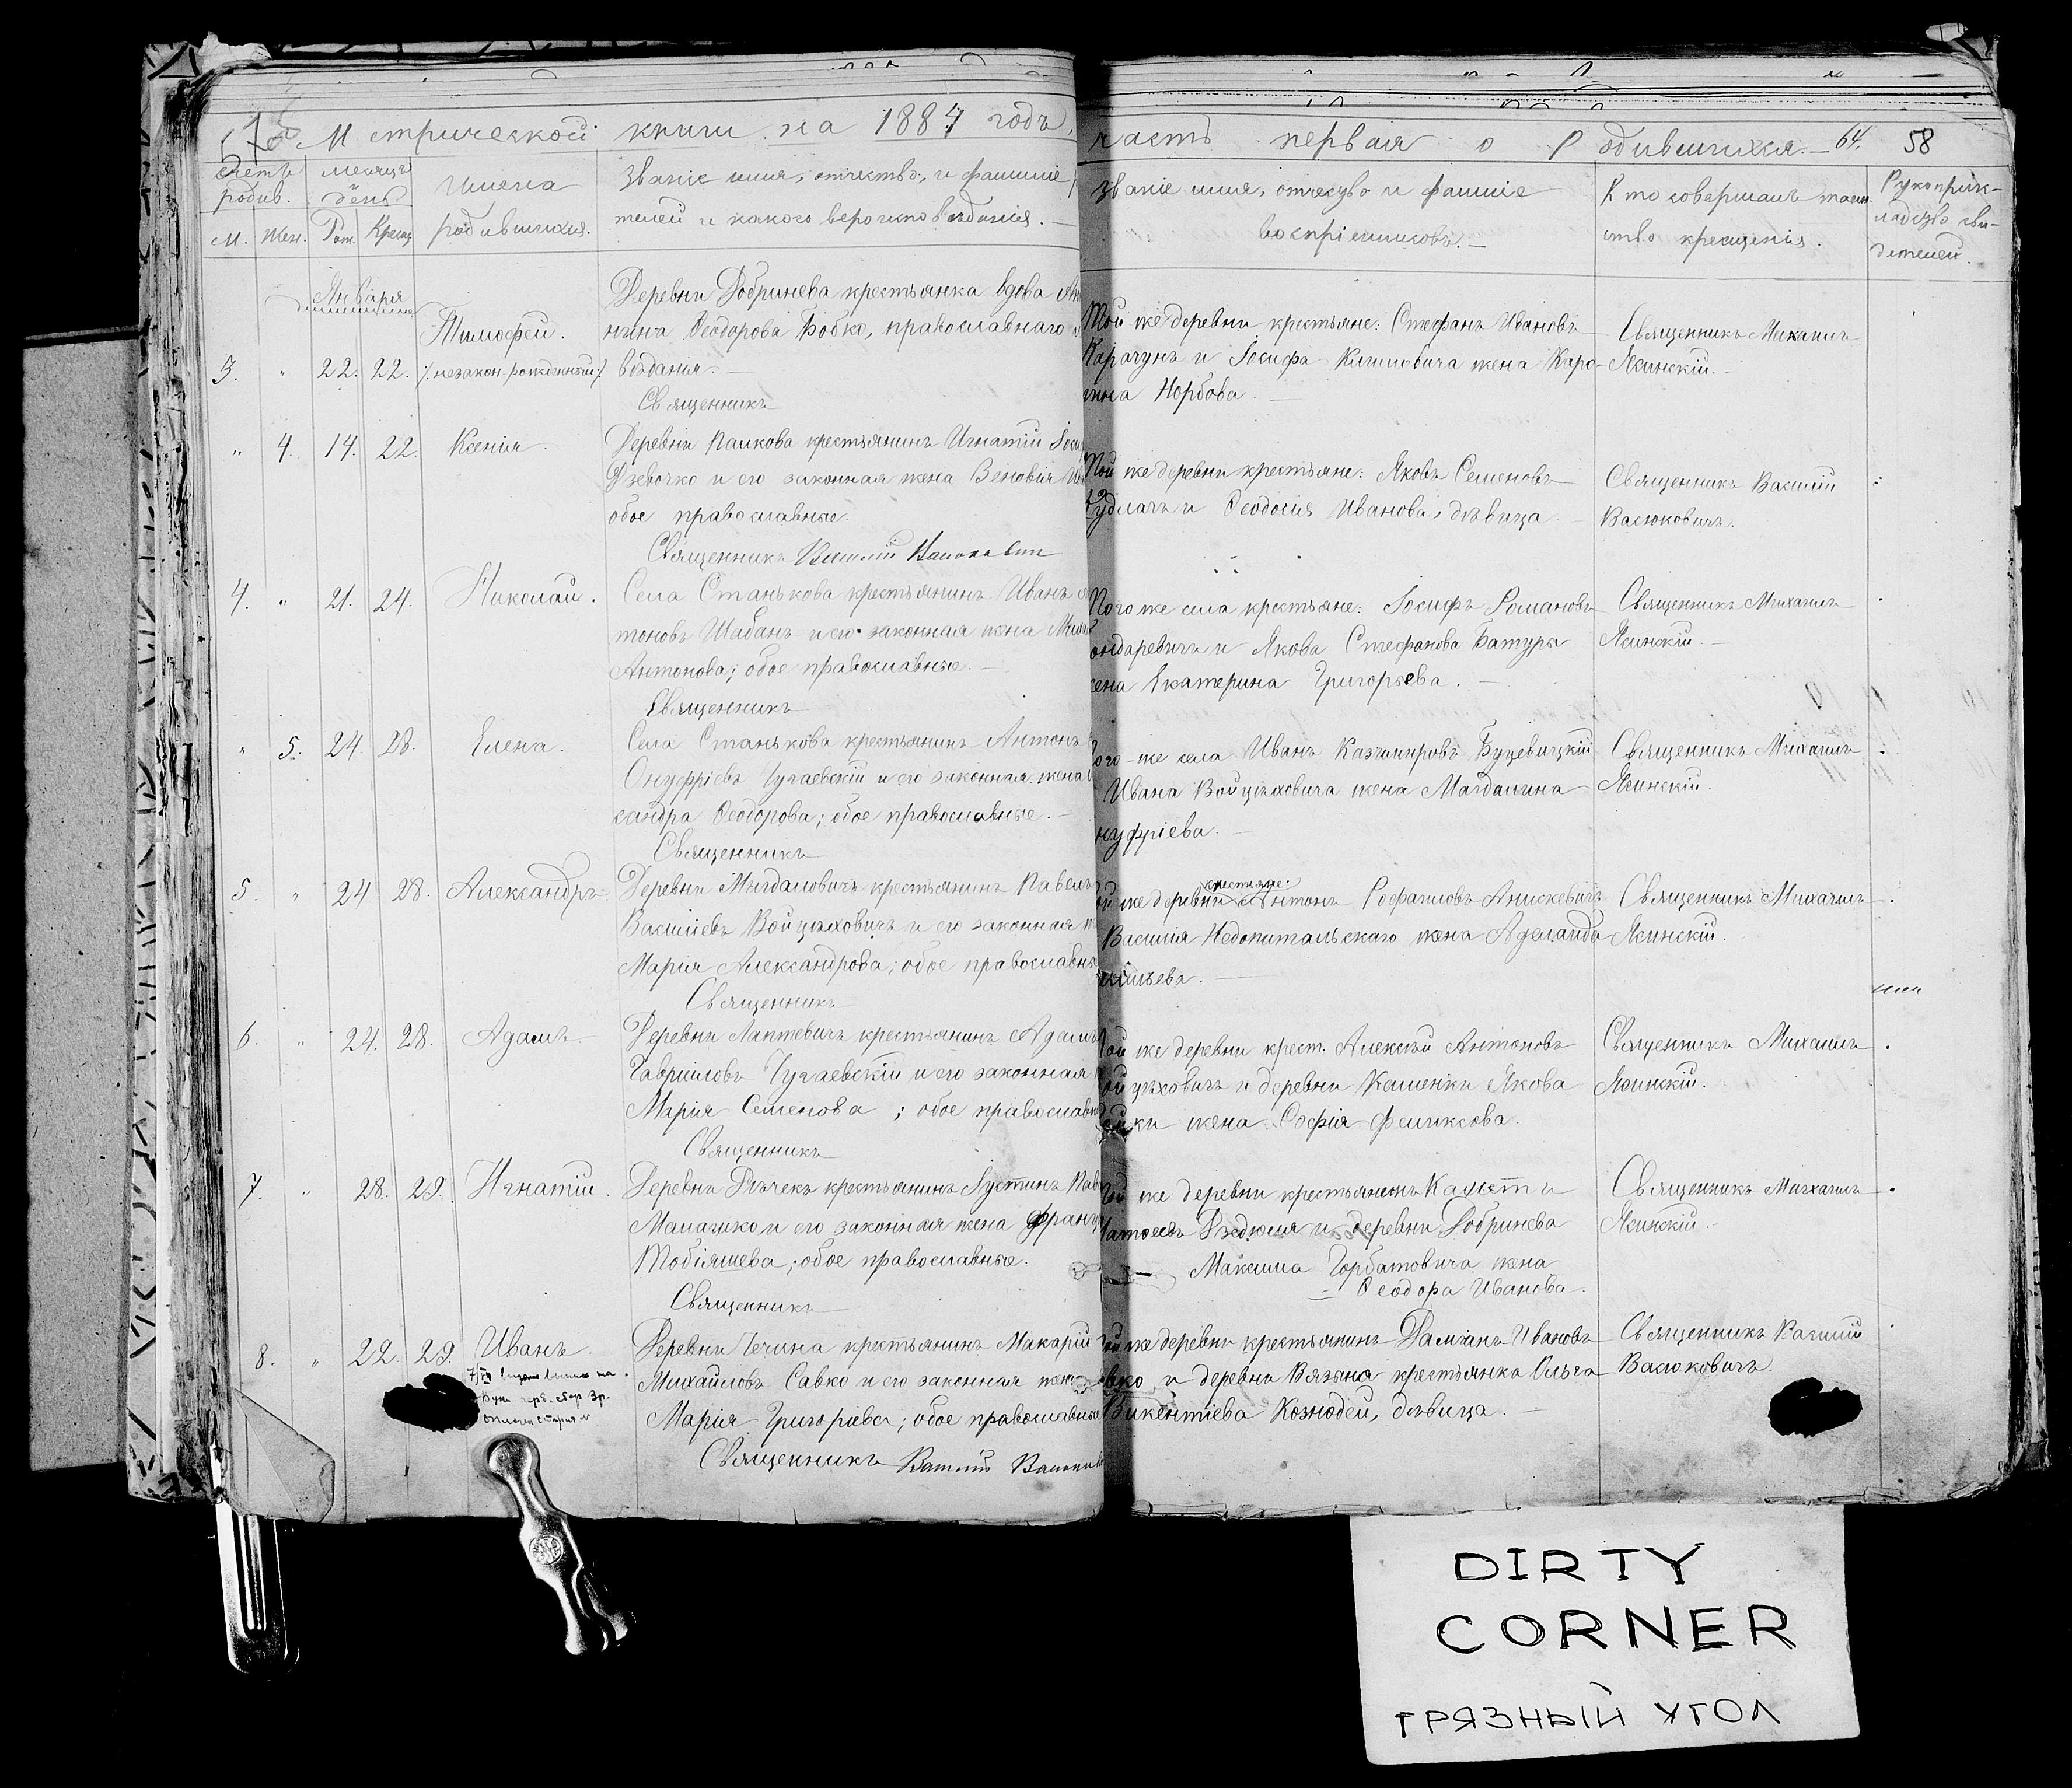 Метрической книги на 1887 годъ,
часть первая о Родившихся. 64. 58
Счетъ родив.
М. Жен.
месяцъ и день
Рож. Крещ
Имена
родившихся.
Званіе имя, отчество, и фамиліе
телей и какого вероисповеданія.
Званіе имя, отчество и фаміліе
воспріемниковъ.
Кто совершалъ таин
ство крещенія.
Рукоприк-
ладство сви-
детелей.
Января
Деревни Добринева крестьянка вдова
3. " 22. 22. Тимофей.
/незакон. рожденный/
Феодорова Бобко, православнаго
веданія.
Священникъ
Той же деревни крестьяне: Стефанъ Ивановъ
Карачунъ и Іосифа Климовича жена Каро-
лина Норбова.
Священникъ Михаилъ
Ясинскій.
" 4. 14. 22. Ксенія.
Деревни Палкова крестьянинъ Игнатій
Дзевочко и его законная жена Зеновія
обое православные.
Священникъ Василій Васюкович
Той же деревни крестьяне: Яковъ Семеновъ
и Феодосія Иванова, дѣвица.
Священникъ Василій
Васюковичъ.
4. " 21. 24. Николай.
Села Станькова крестьянинъ Иванъ
тоновъ Шабанъ и его законная жена
Антонова; обое православные.
Священникъ
Того же села крестьяне: Іосифъ Романовъ
ондаревичъ и Якова Стефанова Батуры
жена Екатерина Григорьева.
Священникъ Михаилъ
Ясинскій.
" 5. 24. 28. Елена.
Села Станькова крестьянинъ Антонъ
Онуфріевъ Чучаевскій и его законная жена
сандра Феодорова; обое православные.
Священникъ
того-же села Иванъ Казимировъ Буцевицкій
Ивана Войцѣховича жена Магдалина
нуфріева.
Священникъ Михаилъ
Ясинскій.
5. " 24 28. Александръ.
Деревни Мыгдаловичъ крестьянинъ Павелъ
Васильевъ Войцѣховичъ и его законная
Марія Александрова; обое православные
Священникъ
крестьяне:
ой же деревни Антонъ Рофаиловъ Анискевичъ
Василія Недопитальскаго жена Аделаида
сильева.
Священникъ Михаилъ
Ясинскій.
6. " 24. 28. Адамъ
Деревни Лаптевичъ крестьянинъ Адамъ
Гавриловъ Чучаевскій и его законная
Марія Семенова; обое православн
Священникъ
ой же деревни крест. Алексѣй Антоновъ
ойцѣховичъ и деревни Каменки Якова
жена София Феликсова.
Священникъ Михаилъ
Ясинскій.
7. " 28. 29. Игнатій.
Деревни Рѣчекъ крестьянинъ Іустинъ Пав
Малашко и его законная жена Франц
Тобіяшева; обое православные.
Священникъ
ой же деревни крестьянинъ
и деревни Добринева
Максима Горбатовича жена
Феодора Иванова.
Священникъ Михаилъ
Ясинскій.
8. " 22. 29. Иванъ.
Деревни Чечина крестьянинъ Макарій
Михайловъ Савко и его законная жена
Марія Григоріева; обое православные
Священникъ Василій Васюкови
ой же деревни крестьянинъ Даміанъ Ивановъ
авко и деревни Вязына крестьянка Ольга
Викентіева Кознодей, дѣвица.
Священникъ Василій
Васюковичъ.
DIRTY
CORNER
ГРЯЗНЫЙ УГОЛ